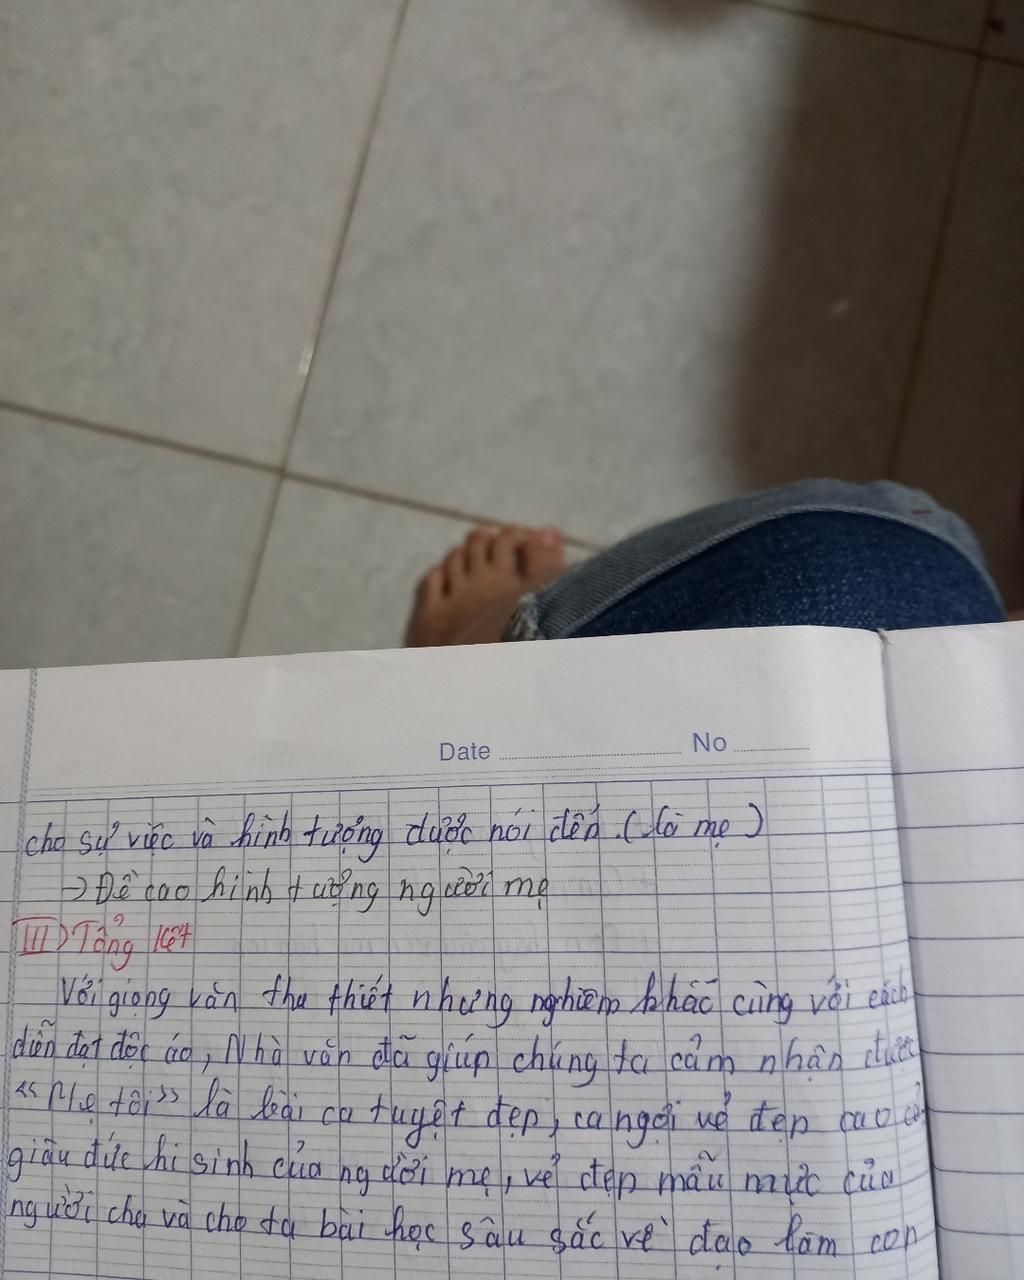 Date No
cho sự việc và hình tượng được nói đến. (là mẹ)
→ Đề cao hình tượng người mẹ
III) Tổng kết
Với giọng văn tha thiết nhưng nghiêm khắc cùng với cách
diễn đạt độc áo, Nhà văn đã giúp chúng ta cảm nhận được
“Mẹ tôi” là bài ca tuyệt đẹp, ca ngợi vẻ đẹp cao cả
giàu đức hi sinh của người mẹ, vẻ đẹp mẫu mực của
người cha và cho ta bài học sâu sắc về đạo làm con